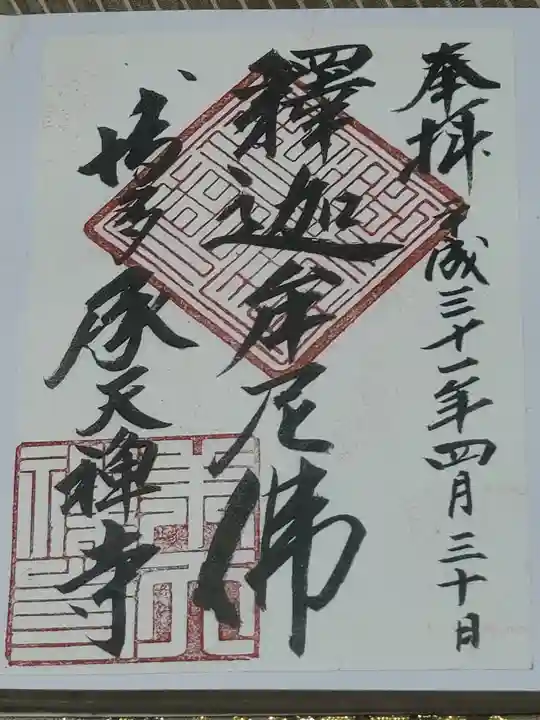 奉拝 平成三十一年四月三十日
釋迦牟尼佛
博多 承天禅寺